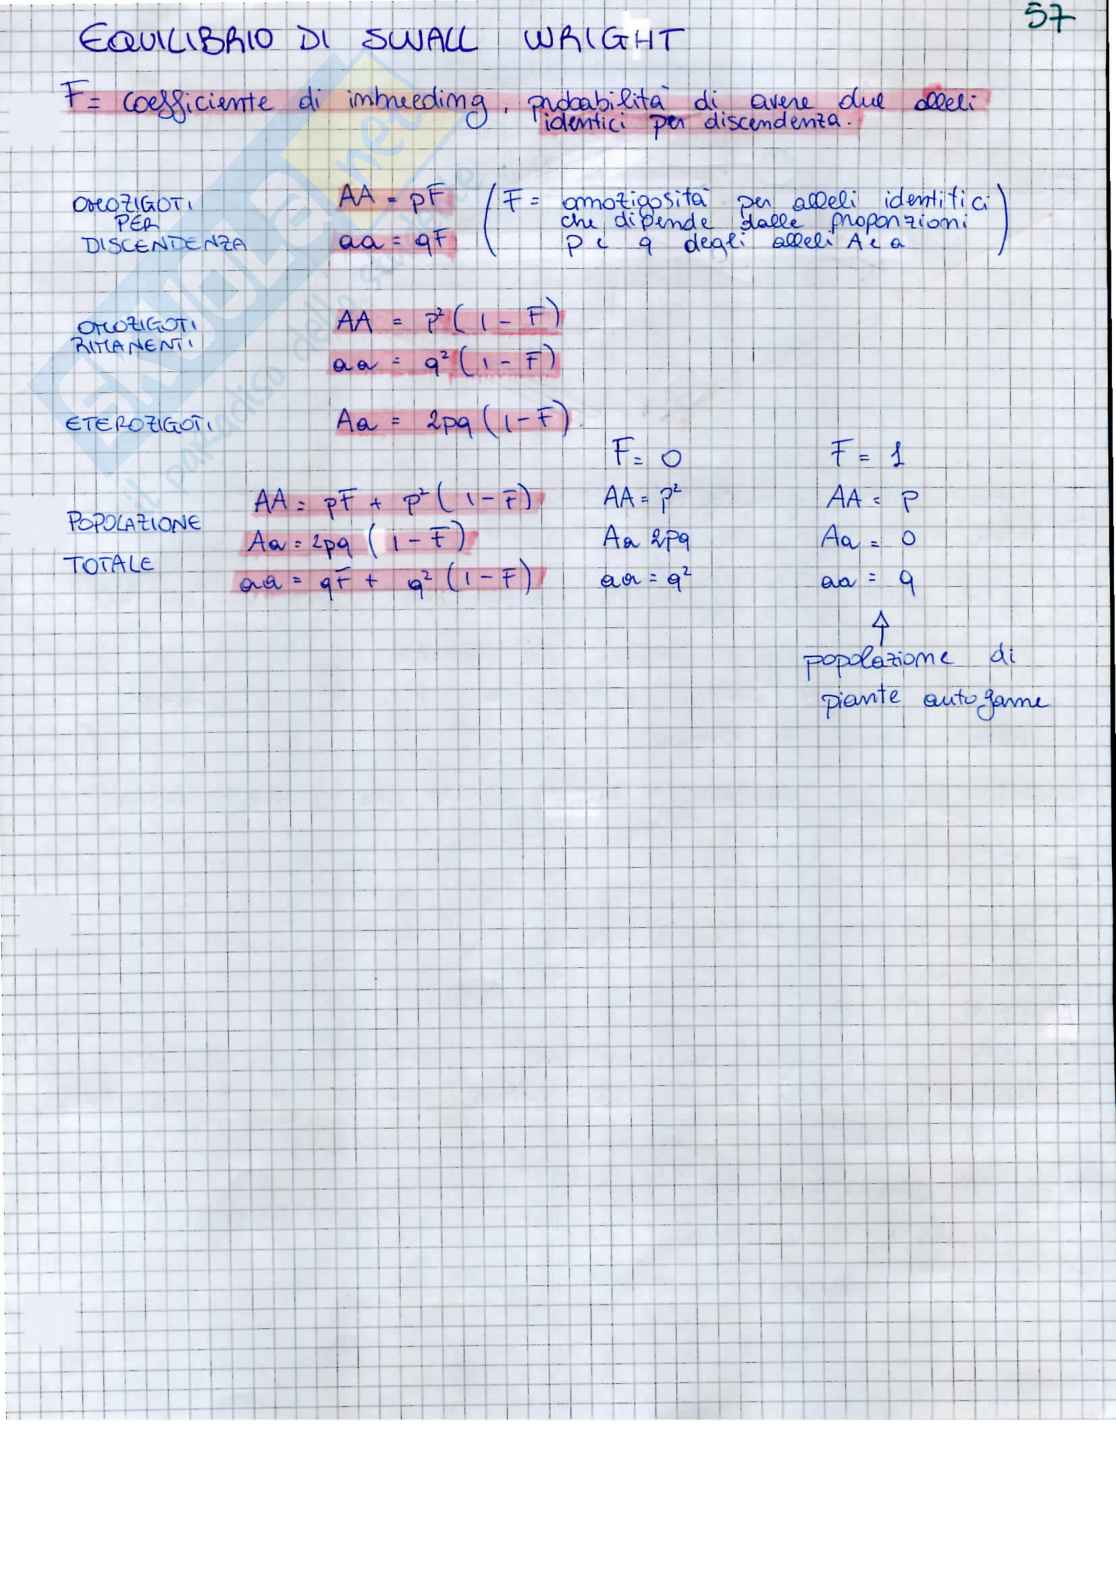 57
EQUILIBRIO DI SWALL WRIGHT
F = coefficiente di imbreeding, probabilità di avere due alleli
identici per discendenza.
OMOZIGOTI
PER
DISCENDENZA
AA = pF
aa = qF
(F = omozigosità per alleli identitici
che dipende dalle proporzioni
p e q degli alleli A e a)
OMOZIGOTI
RIMANENTI
AA = p²(1 - F)
aa = q²(1 - F)
ETEROZIGOTI
Aa = 2pq (1-F)
POPOLAZIONE
TOTALE
AA = pF + p²(1-F)
Aa = 2pq (1-F)
aa = qF + q²(1-F)
F = 0
AA = p²
Aa 2pq
aa = q²
F = 1
AA = p
Aa = 0
aa = q
popolazione di
piante autogame
SKUOLA.net
il paradiso dello studente